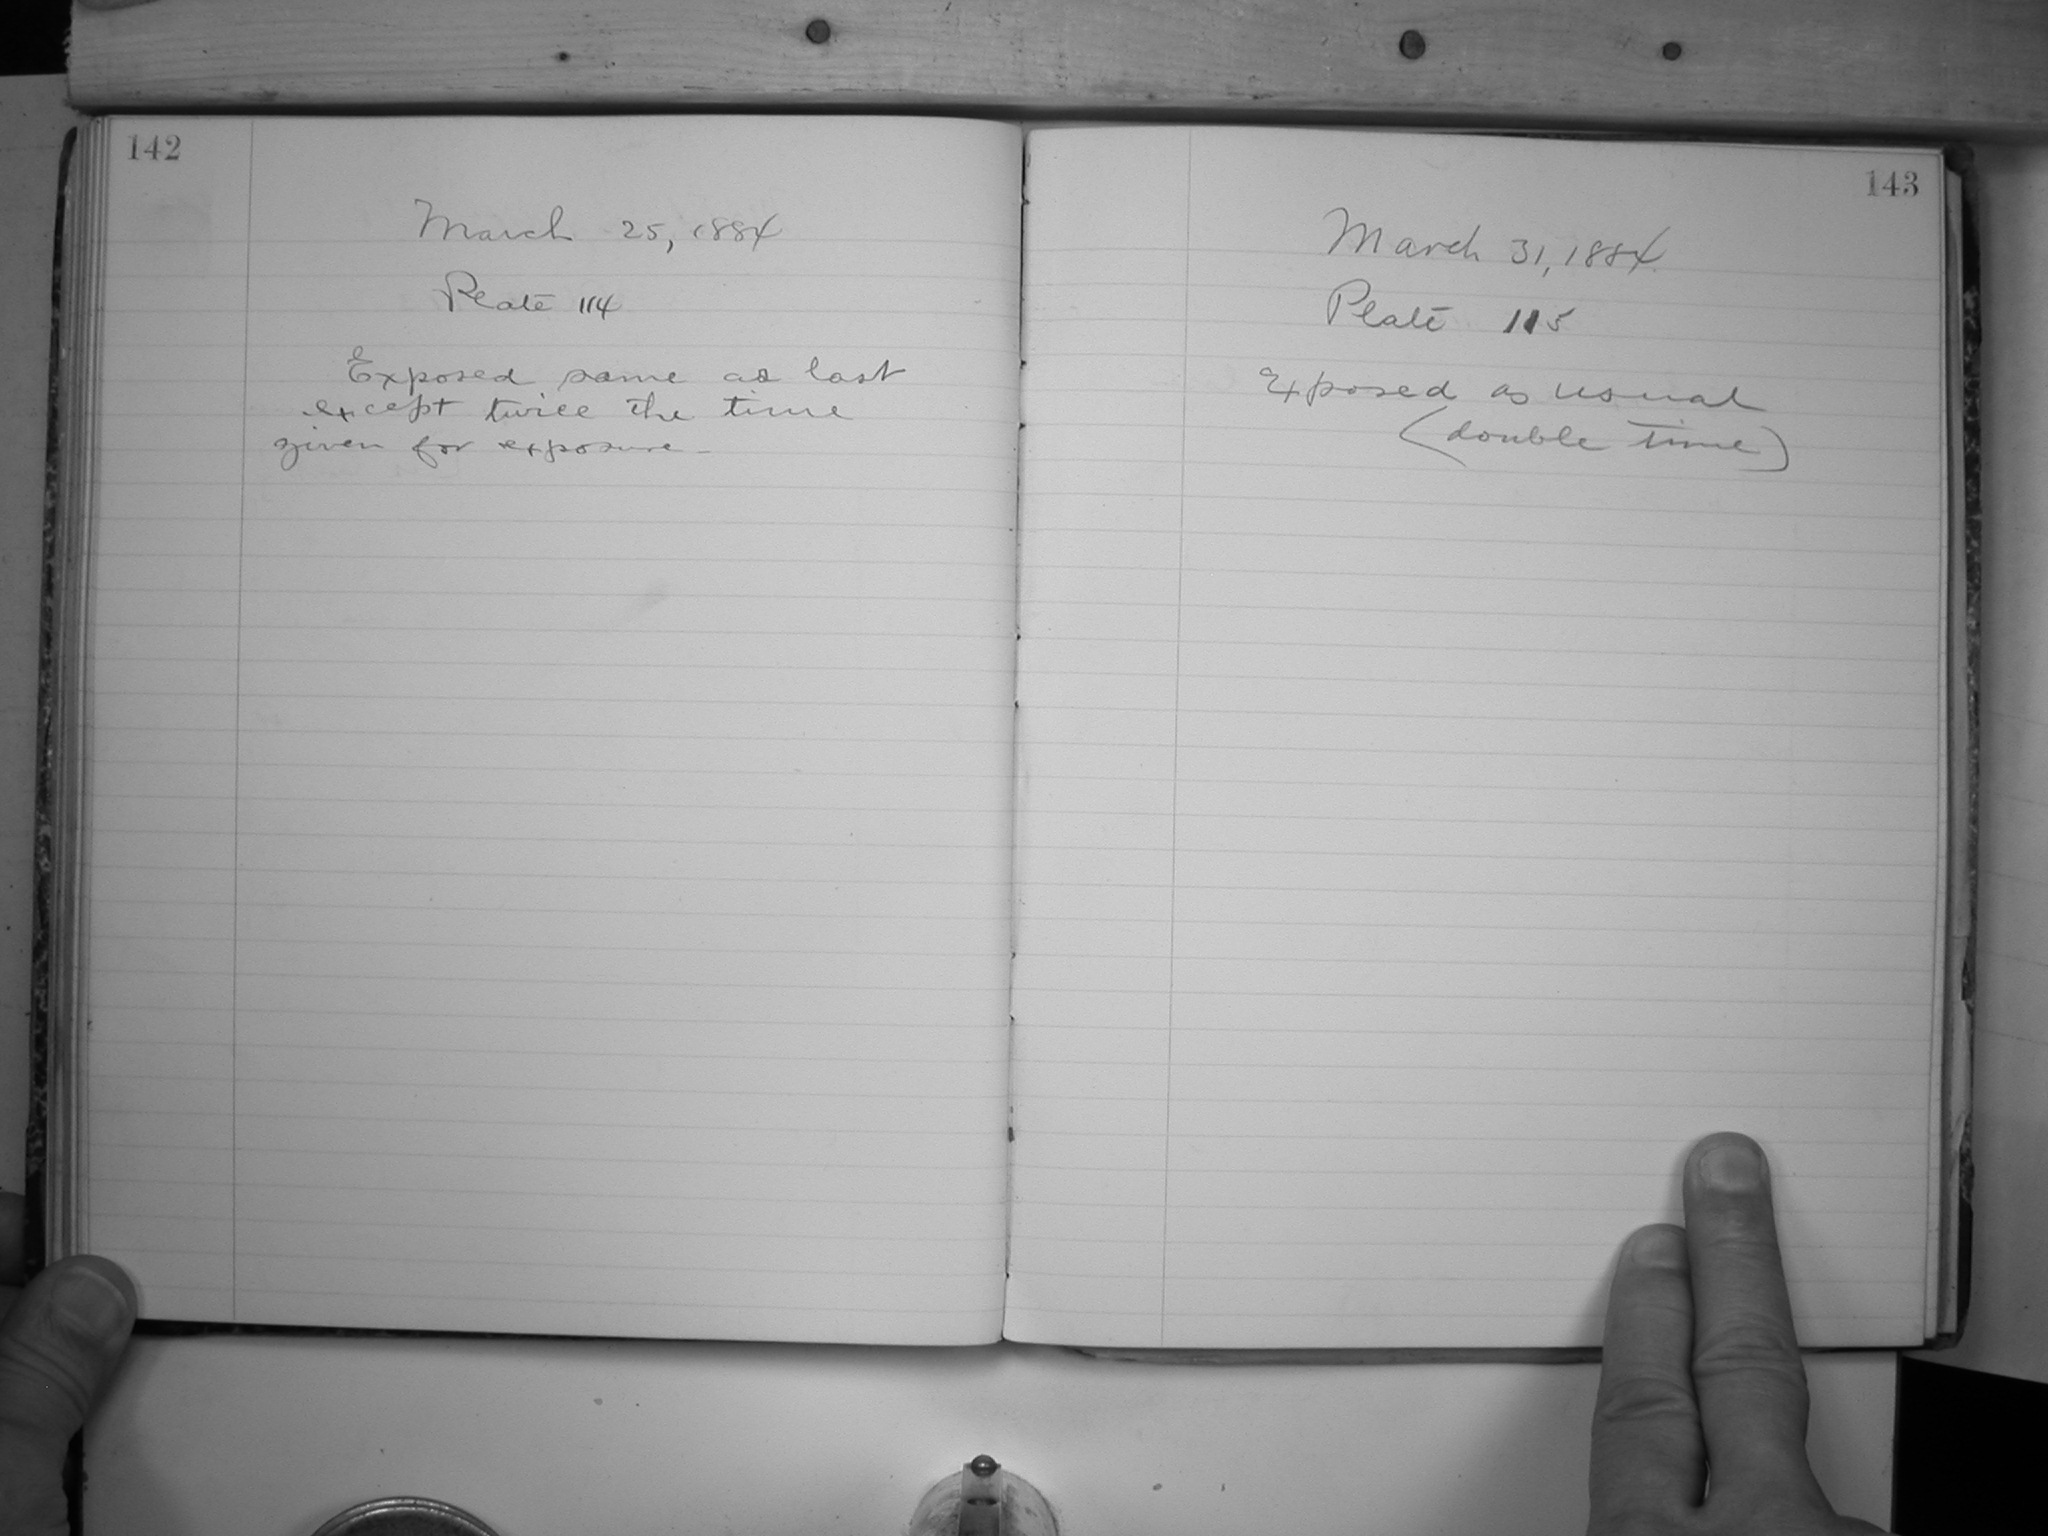 142
March 25, 1884
Plate 114
Exposed same as last
except twice the time
given for exposure -
143
March 31, 1884
Plate 115
Exposed as usual
(double time)